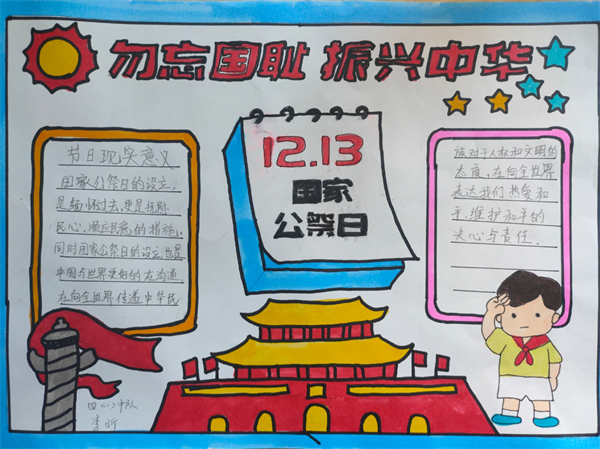 勿忘国耻 振兴中华
节日现实意义
国家公祭日的设立,
是缅怀过去,更是抚慰
民心、顺应民意的措施,
同时国家公祭日的设立,也是
中国与世界更好的去沟通
在向全世界传递中华民
12.13
国家
公祭日
族对于人权和文明的
态度,在向全世界
表达我们热爱和
平,维护和平的
决心与责任.
四(2)中队
李昕